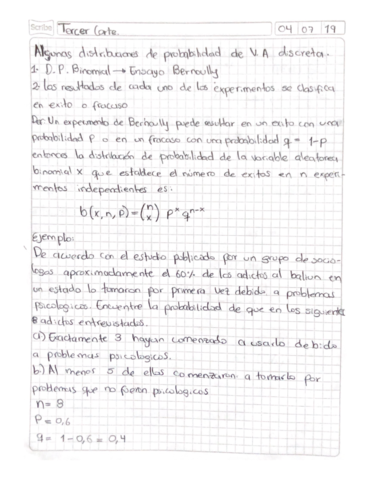 Scribe Tercer Corte. 04 07 19
Algunas distribuciones de probabilidad de V.A discreta.
1- D.P. Binomial → Ensayo Bernoully
2- los resultados de cada uno de los experimentos se clasifica
en exito o fracaso
Def Un experimento de Bernoully puede resultar en un exito con una
probabilidad P o en un fracaso con una probabilidad q = 1-p
entonces la distribución de probabilidad de la variable aleatorea
binomial x que establece el número de exitos en n experi-
mentos independientes es:
b(x,n,p) = (n x) p^x q^n-x
Ejemplo:
De acuerdo con el estudio publicado por un grupo de socio-
logos aproximadamente el 60% de los adictos al valium en
un estado lo tomaron por primera vez debido a problemas
psicologicos. Encuentre la probabilidad de que en los siguientes
8 adictos entrevistados.
a) Exactamente 3 hayan comenzado a usarlo debido
a problemas psicologicos.
b) Al menos 5 de ellos comenzaron a tomarlo por
problemas que no fueron psicologicos
n = 8
P = 0,6
q = 1-0,6 = 0,4